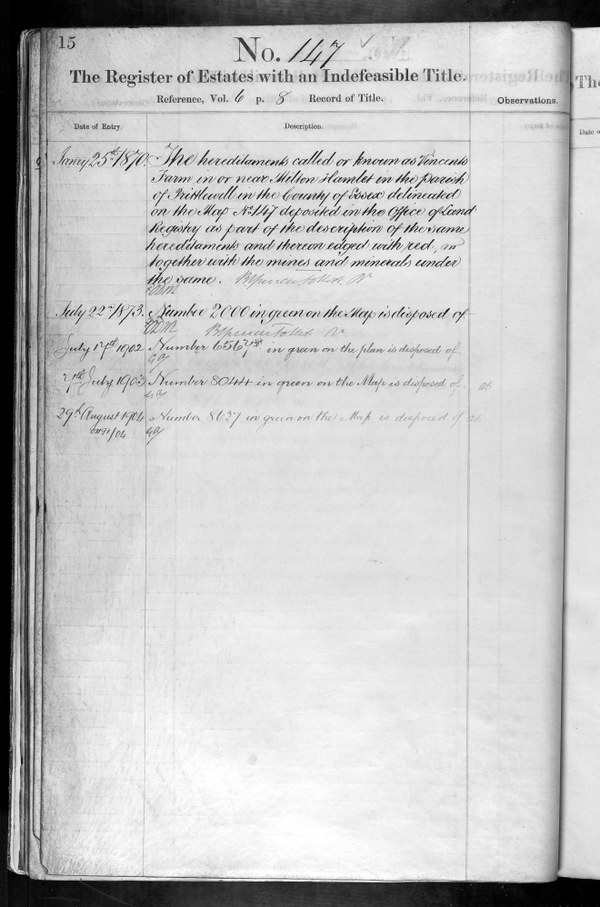 15
No. 147
The Register of Estates with an Indefeasible Title.
Reference, Vol. 6 p. 8 Record of Title.
Observations.
Date of Entry.
Description.
Janry 25th 1870. The hereditaments called or known as Vincents
Farm in or near Milton Hamlet in the parish
of Prittlewell in the County of Essex delineated
on the Map No. 147 deposited in the Office of Land
Registry as part of the description of the same
hereditaments and thereon edged with red,
together with the mines and minerals under
the same. Brent Spencer Follett R
July 22nd 1873. Number 2000 in green on the Map is disposed of
Brent Spencer Follett R
July 17th 1902 Number 6567 in green on the plan is disposed of.
21st July 1903 Number 8044 in green on the Map is disposed of.
29th August 1904 Number 8637 in green on the Map is disposed of
The
Date of